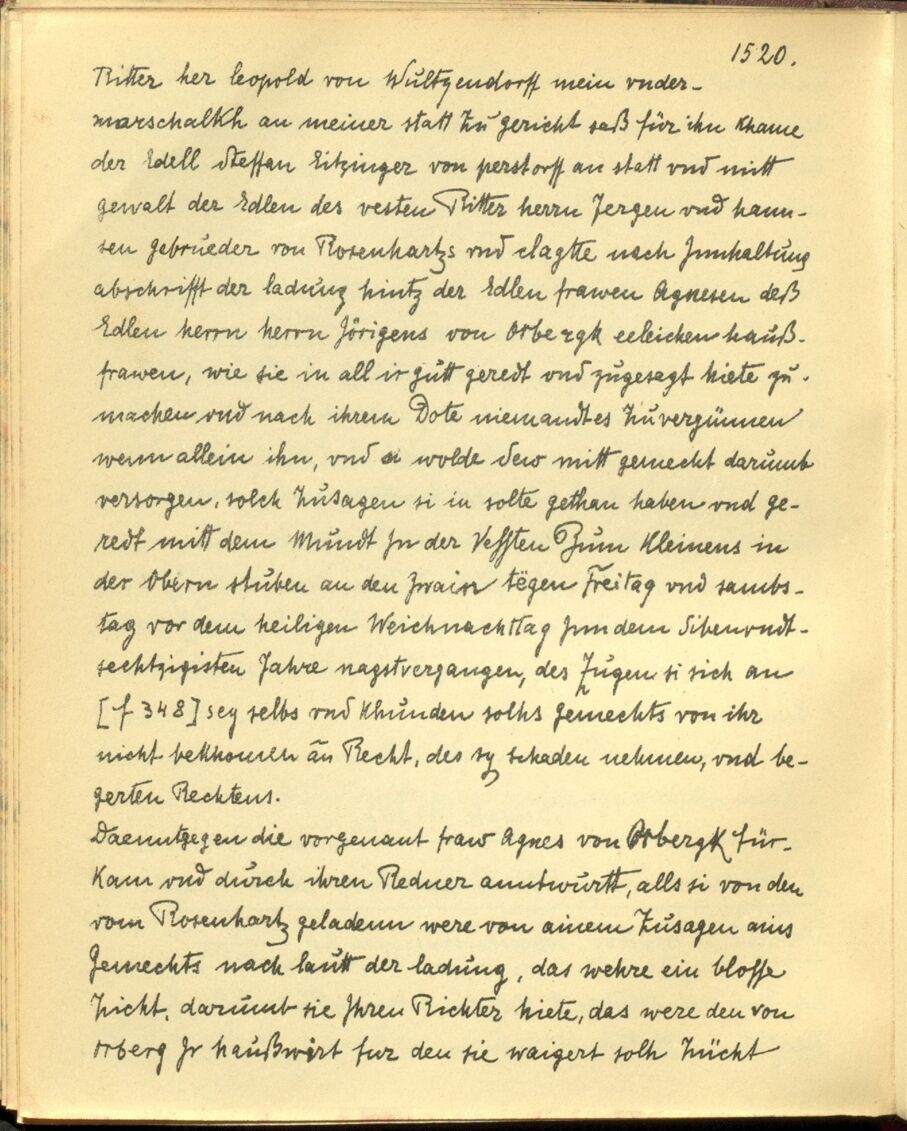 1520.
Ritter her leopold von Wultzendorff mein vnder-
marschalkh an meiner statt zu gericht saß für ihn khame
der Edell Steffan Eitzinger von perstorff an statt vnd mitt
gewalt der Edlen des vesten Ritter herrn Jergen vnd hann-
sen gebrueder von Rosenhartzs vnd clagtte nach Innhaltung
abschrifft der ladung hintz der Edlen frawen Agnesen deß
Edlen herrn herrn Jörigens von Orbergk eeleichen hauß-
frawen, wie sie in all ir gutt geredt vnd zugesagt hiete zu-
machen vnd nach ihrem Dote niemandtes zuvergünnen
wenn allein ihn, vnd si wolde dew mitt gemecht darumb
versorgen, solch zusagen si in solte gethan haben vnd ge-
redt mitt dem Mundt In der Vessten Zum Kleinens in
der Obern stuben an den zwain tëgen Freitag vnd sambs-
tag vor dem heiligen Weichnachttag Inn dem Sibenvndt-
sechtzigisten Jahre nagstvergangen, des zugen si sich an
[f 348] sey selbs vnd khunden solhs gemechts von ihr
nicht bekhomen än Recht, des sy schaden nehmen, vnd be-
gerten Rechtens.
Daenntgegen die vorgenant fraw Agnes von Orbergk für-
kam vnd durch ihren Redner anntwurtt, alls si von den
vom Rosenhartz geladenn were von ainem zusagen ains
Gemechts nach lautt der ladung, das wehre ein blosse
zicht, darumb sie Ihren Richter hiete, das were den von
Orberg Ir haußwirt fur den sie waigert solh zücht